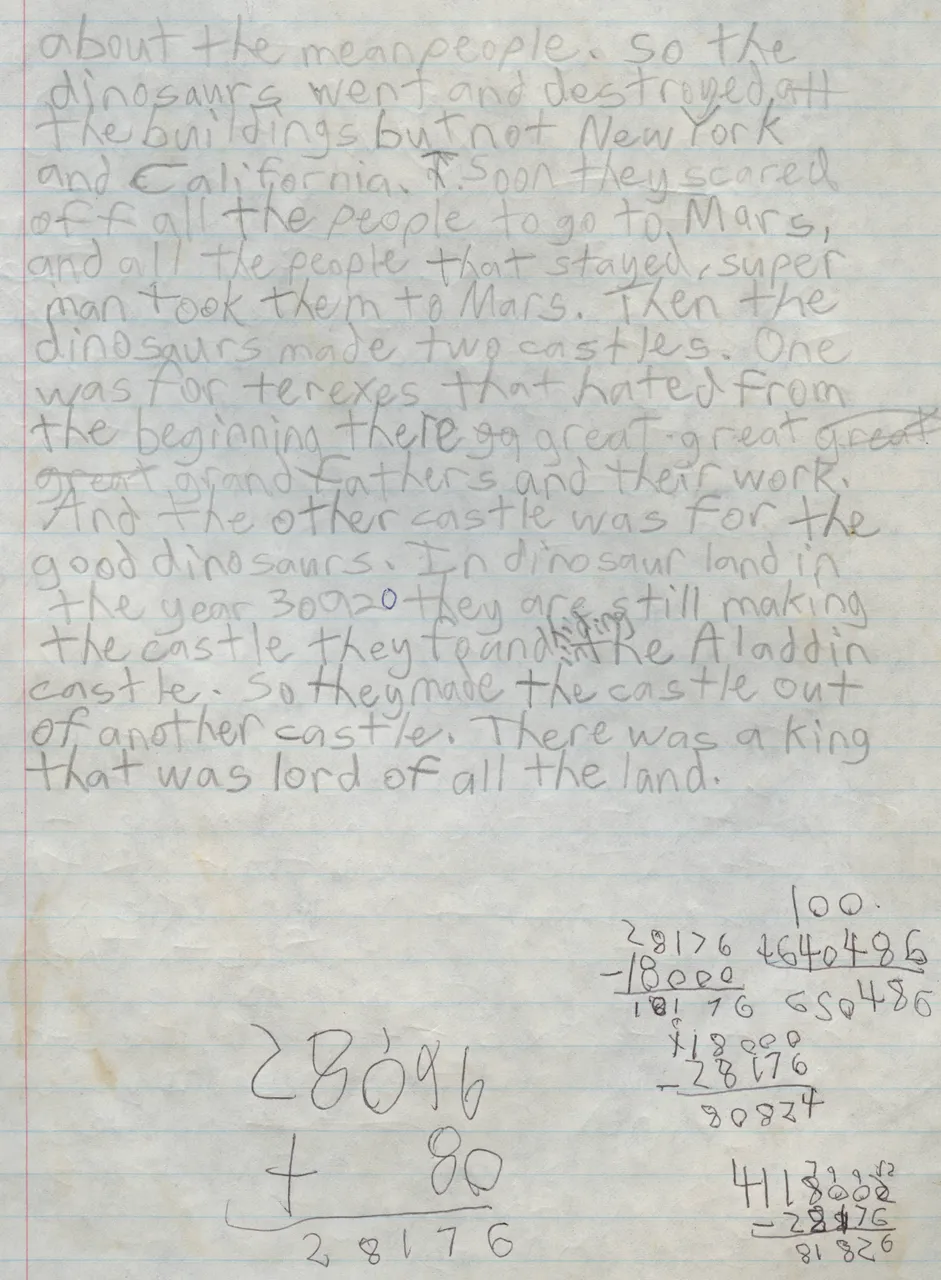 about the mean people. So the
dinosaurs went and destroyed all
the buildings but not New York
and California. Soon they scared
off all the people to go to Mars,
and all the people that stayed, super
man took them to Mars. Then the
dinosaurs made two castles. One
was for terexes that hated from
the beginning there 99 great-great great
great grand fathers and their work.
And the other castle was for the
good dinosaurs. In dinosaur land in
the year 30920 they are still making
the castle they found the Aladdin
castle. So they made the castle out
of another castle. There was a king
that was lord of all the land.
100.
28176
-18000
10176
+640486
650486
118000
-28176
80824
28096
+ 80
28176
4118000
-28176
81826